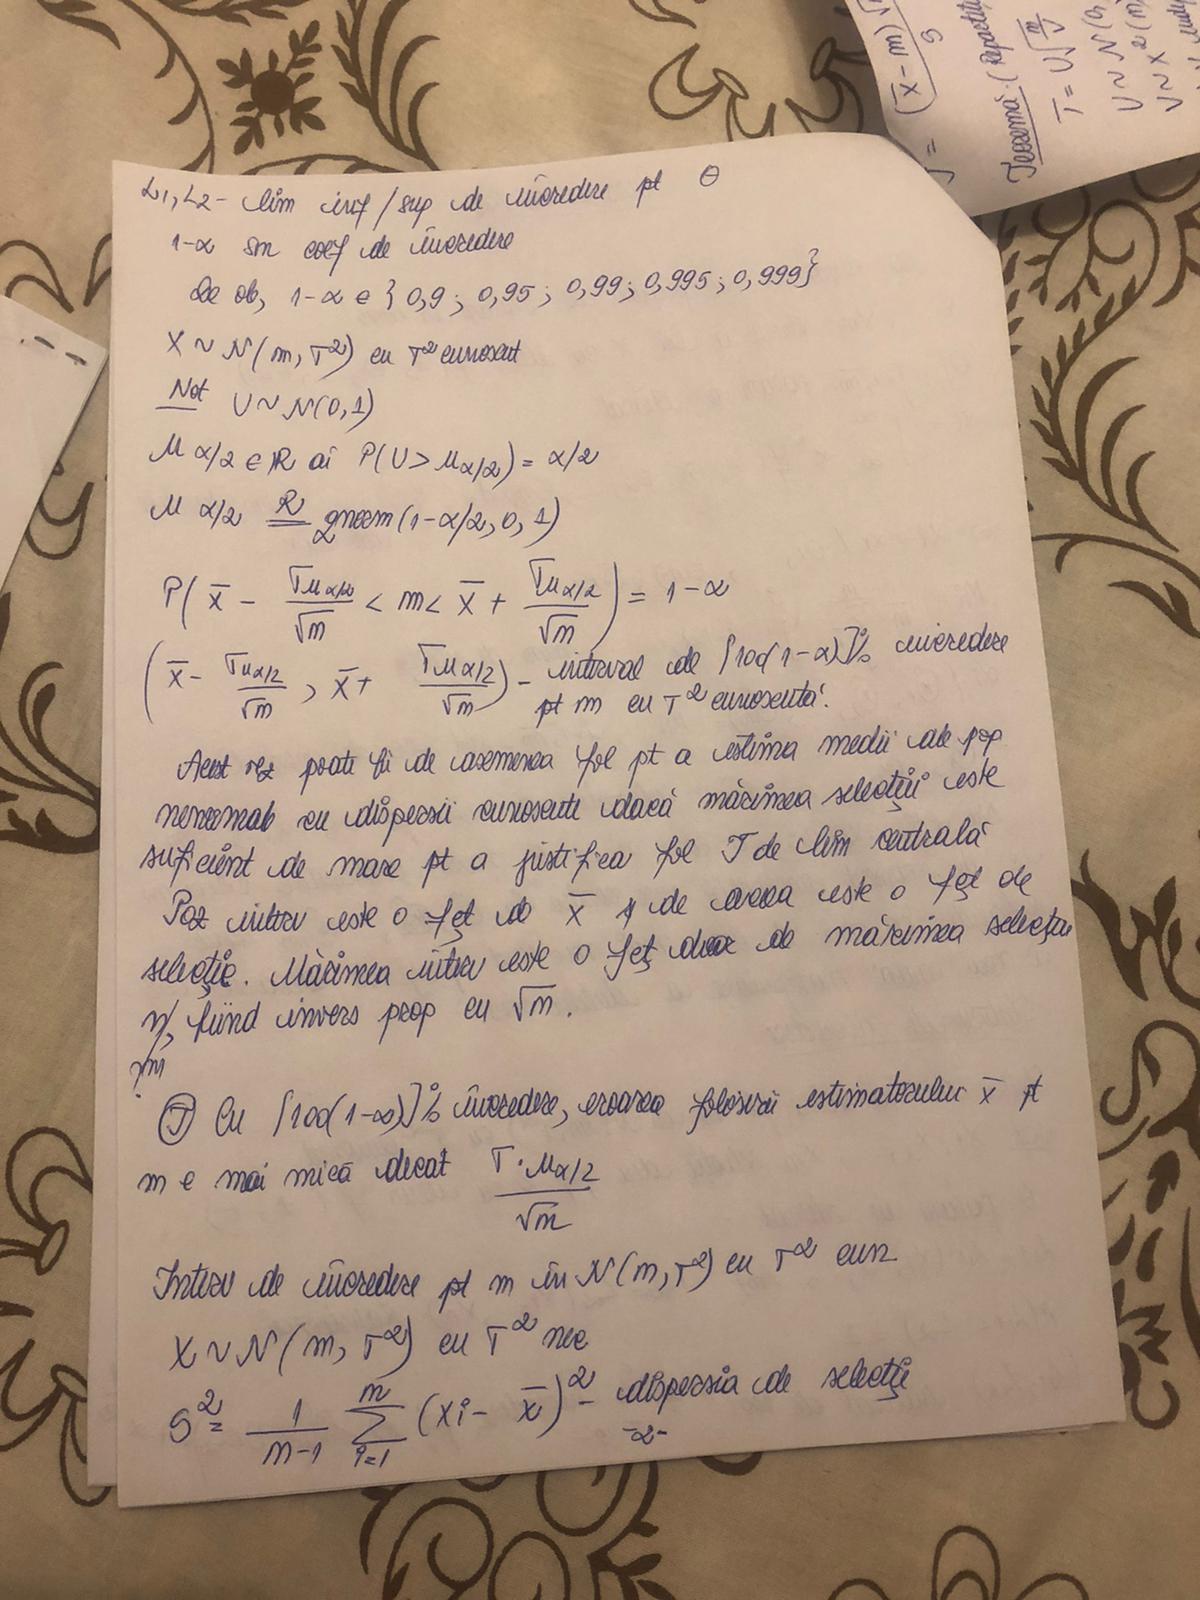 L1, L2 - lim inf/sup de încredere pt θ
1-α sn coef de încredere
De ob, 1-α ∈ {0,9 ; 0,95 ; 0,99 ; 0,995 ; 0,999}
X ~ N(m, σ²) cu σ² cunoscut
Not U ~ N(0,1)
μ α/2 ∈ R ai P(U > μ α/2) = α/2
μ α/2 R= qnorm(1-α/2, 0, 1)
P( x̄ - σμ α/2 / √n < m < x̄ + σμ α/2 / √n ) = 1-α
( x̄ - σμ α/2 / √n , x̄ + σμ α/2 / √n ) - interval de [100(1-α)]% încredere
pt m cu σ² cunoscută.
Acest rez poate fi de asemenea fol pt a estima medii ale pop
nenormale cu dispersii cunoscute dacă mărimea selecției este
suficient de mare pt a justifica fol T de lim centrală
Poz interv este o fcț de x̄ și de aceea este o fcț de
selecție. Mărimea interv este o fcț doar de mărimea selecției
n, fiind invers prop cu √n.
T Cu [100(1-α)]% încredere, eroarea folosirii estimatorului x̄ pt
m e mai mică decat σ·μ α/2 / √n
Interv de încredere pt m în N(m, σ²) cu σ² cun
X ~ N(m, σ²) cu σ² nec
S² = 1/(n-1) ∑ i=1 n (xi - x̄)² - dispersia de selecție
-2-
(x̄-m)√
S
Teoremă
T = U√n/V
U ~ N(0,
V ~ X²(n)